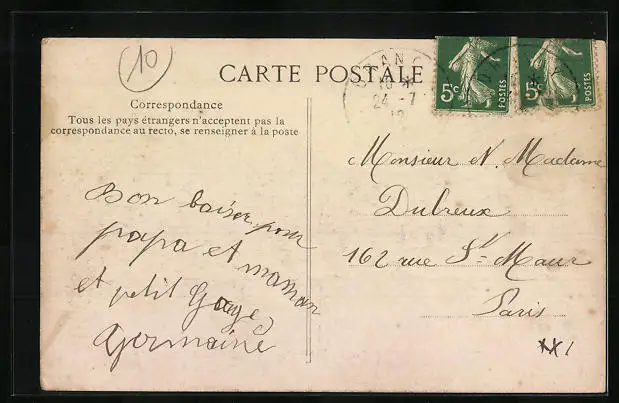 10
CARTE POSTALE
Correspondance
Tous les pays étrangers n'acceptent pas la
correspondance au recto, se renseigner à la poste
Bon baiser pour
papa et maman
et petit
Germaine
10 *
24 - 7
5c POSTES
5c POSTES
Monsieur N. Madame
Dubreux
162 rue St- Maur
Paris
XX1